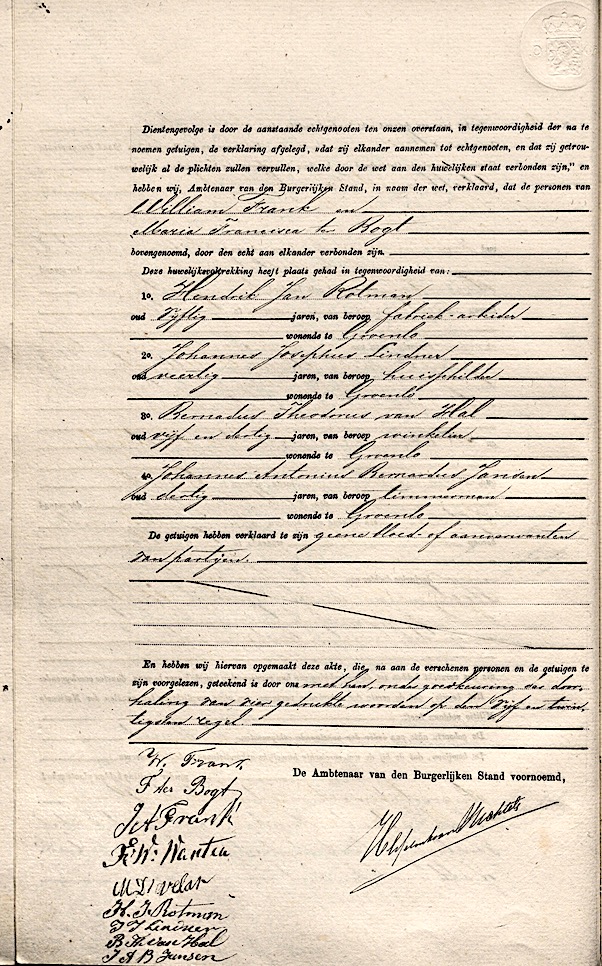 Dientengevolge is door de aanstaande echtgenooten ten onzen overstaan, in tegenwoordigheid der na te
noemen getuigen, de verklaring afgelegd, „dat zij elkander aannemen tot echtgenooten, en dat zij getrou-
welijk al de plichten zullen vervullen, welke door de wet aan den huwelijken staat verbonden zijn,” en
hebben wij, Ambtenaar van den Burgerlijken Stand, in naam der wet, verklaard, dat de personen van
William Frank en
Maria Francisca ter Bogt
bovengenoemd, door den echt aan elkander verbonden zijn.
Deze huwelijksvoltrekking heeft plaats gehad in tegenwoordigheid van:
1o. Hendrik Jan Rotman
oud vijftig jaren, van beroep fabriek-arbeider
wonende te Groenlo
2o. Johannes Josephus Lindner
oud veertig jaren, van beroep huisschilder
wonende te Groenlo
3o. Bernardus Theodorus van Hal
oud vijf en dertig jaren, van beroep winkelier
wonende te Groenlo
4o. Johannes Antonius Bernardus Jansen
oud dertig jaren, van beroep timmerman
wonende te Groenlo
De getuigen hebben verklaard te zijn geene bloed- of aanverwanten
van partijen.
En hebben wij hiervan opgemaakt deze akte, die, na aan de verschenen personen en de getuigen te
zijn voorgelezen, geteekend is door ons met hen, onder goedkeuring der door-
haling van vier gedrukte woorden op den vijf en twin-
tigsten regel.
De Ambtenaar van den Burgerlijken Stand voornoemd,
W. Frank
F ter Bogt
J A Frank
H. J. Rotman
J J Lindner
B Th van Hal
J A B Jansen